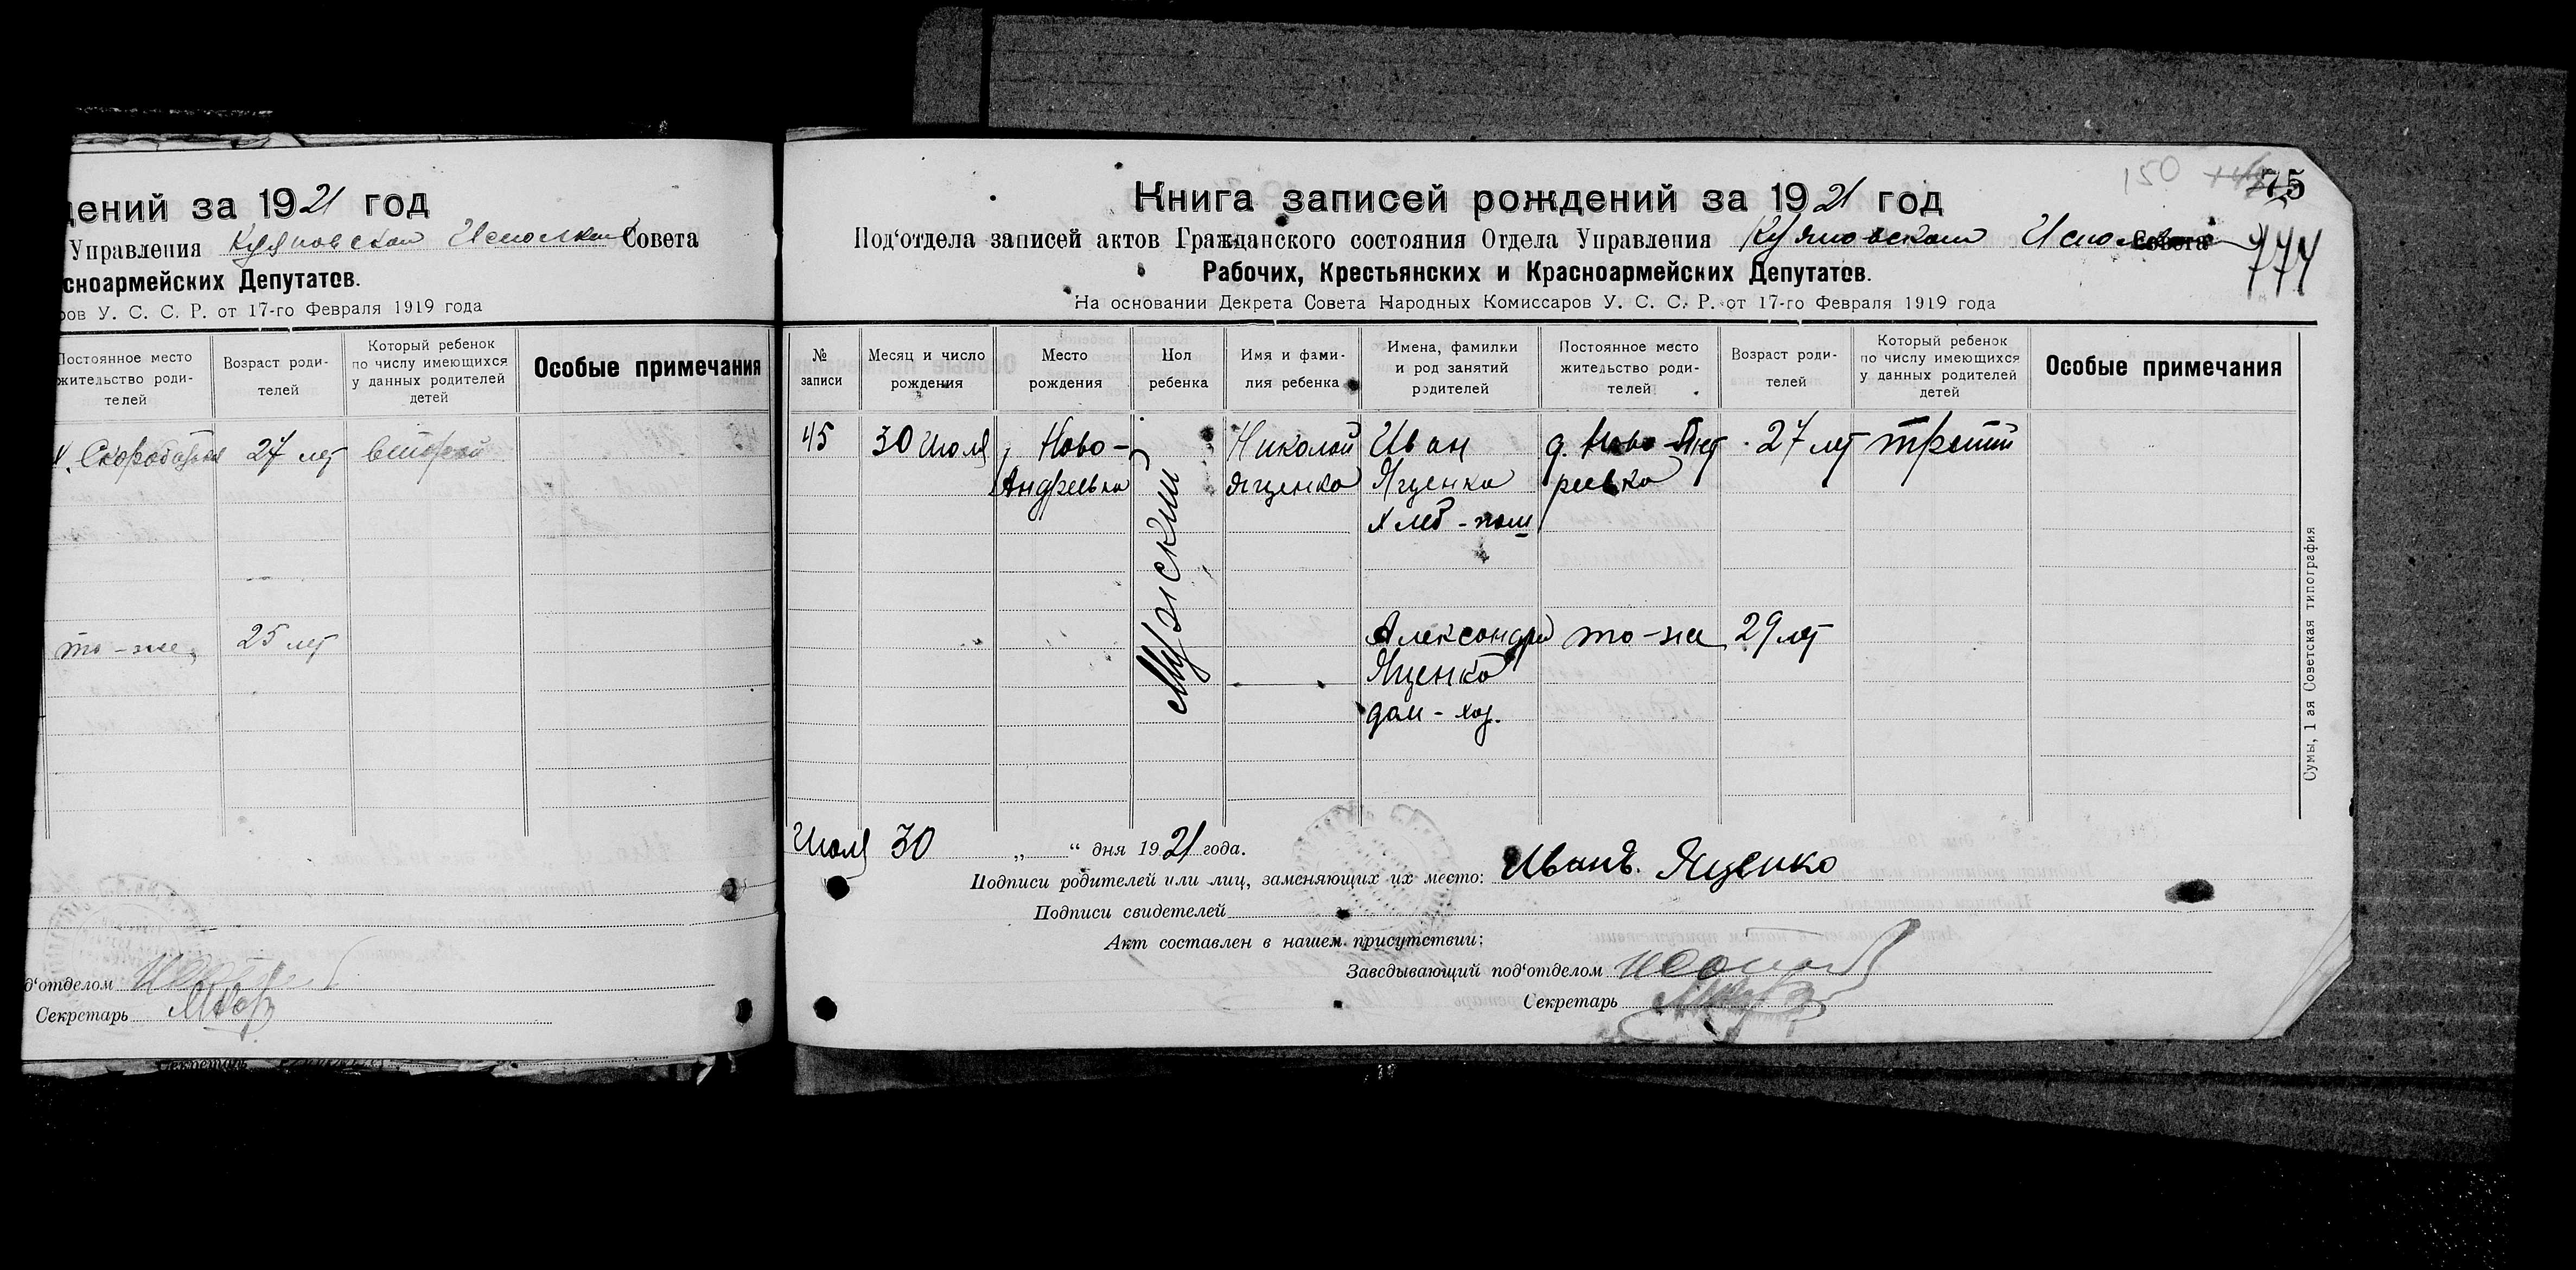 дений за 1921 год
Управления Исполком Совета
сноармейских Депутатов.
ров У. С. С. Р. от 17-го Февраля 1919 года
Постоянное место жительство роди-телей
Возраст роди-телей
Который ребенок по числу имеющихся у данных родителей детей
Особые примечания
27 лет второй
то-же 25 лет
д‘отделом
Секретарь
Секретарь
150
75
774
Книга записей рождений за 1921 год
Под‘отдела записей актов Гражданского состояния Отдела Управления Совета
Рабочих, Крестьянских и Красноармейских Депутатов.
На основании Декрета Совета Народных Комиссаров У. С. С. Р. от 17-го Февраля 1919 года
№ записи
Месяц и число рождения
Место рождения
Пол ребенка
Имя и фами-лия ребенка
Имена, фамилии и род занятий родителей
Постоянное место жительство роди-телей
Возраст роди-телей
Который ребенок по числу имеющихся у данных родителей детей
Особые примечания
45
30 Июля
Ново-
Андреевка
Мужский
Николай
Ященко
Иван
Ященко
хлеб-паш
д. Ново-Анд
реевка
27 лет
третий
Александра
Ященко
дом-хоз.
то-же
29 лет
Июля 30 „ “ дня 1921 года.
Подписи родителей или лиц, заменяющих их место: Иванъ. Ященко
Подписи свидетелей
Акт составлен в нашем присутствии:
Заведывающий под‘отделом
Секретарь
Сумы, 1 ая Советская типография